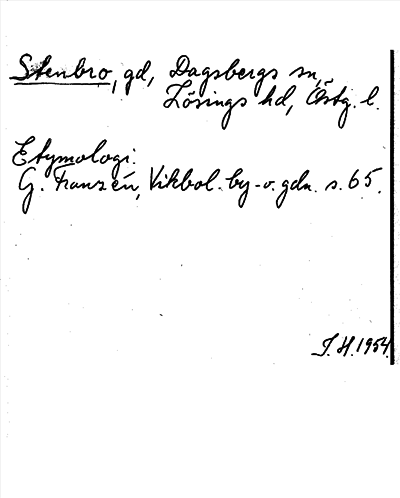 Stenbro, gd, Dagsbergs sn,
Lösings hd, Östg. l.
Etymologi:
G. Franzén, Vikbol. by- o. gdn. s. 65.
J. H. 1954.